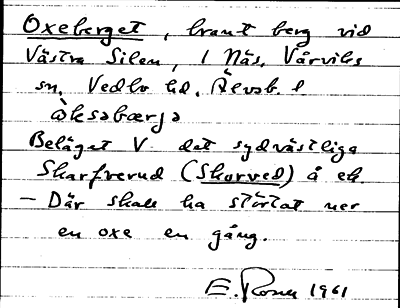 Oxeberget, brant berg vid
Västra Silen, i Näs, Vårviks
sn, Vedbo hd. Älvsb. l
ὼksabærja
Beläget V det sydvästliga
Skarfverud (Skorved) å ek.
– Där skall ha störtat ner
en oxe en gång.
E. 1961